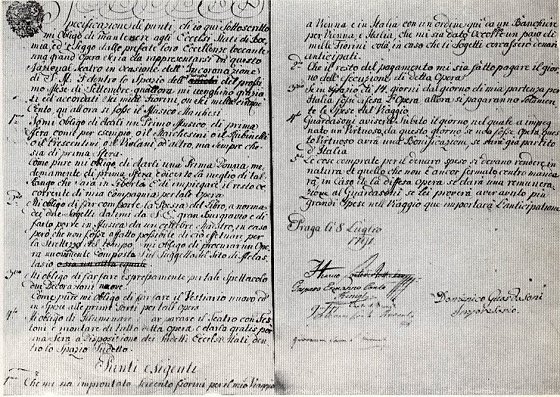 Specificazione di punti, ch'io quì sottoscritto
mi obligo di mantenere agli Eccelsi Stati di Boe-
mia, ed esiggo dalle prefate loro Eccellenze toccante
una grand Opera seria da rappresentarsi in questo
Nazional teatro in occasione dell'Incoronazione
di S. M. I. dentro lo spazio dell prossi-
mo Mese di Settembre qualora mi venghino
ti ed accordati sei mille fiorini, ou sei mille cinque
Cento quallora si fosse il Musico Marchesi
1mo Mi obligo di darli un Primo Musico, di prima
sfera come per esempio o il Marchesini o il Rubinelli
o il Crescentini, o il Violani od altro, ma sempre che
sia di prima sfera.
Come pure mi obligo di darli una Prima Donna, me-
demamente di prima sfera e di certo la meglio di tal
rango che sarà in libertà e di impiegare il resto oc-
corrente di mia Compagnia per tale Opera
2do Mi obligo di far comporre la Poesia del libro, a norma
dei due sogetti datimi da S. E. gran Burgravio e di
farlo porre in Musica da un cellebre Maestro, in caso
però che non fosse affatto possibile di ciò effetuare per
la strettezza del tempo, mi obligo di procurar un Opera
nuovamente composta sul sugetto del Tito di Metas-
tasio
3zo Mi obligo di far fare espressamente per tale spettacolo
due Decorazioni nuove
Come pure mi obligo di far fare il Vestiario nuovo ed
in spece alle prime Parti per tale Opera
4to Mi obligo di illuminare, ed apparare il Teatro con Fes-
toni e montare di tutto detta Opera e darla gratis per
una sera a Disposizione dei sudetti Eccelsi Stati, den-
tro lo spazio sudetto.
Punti esigenti
1mo Che mi sia improntato seicento fiorini per il mio Viaggio
a Vienna e in Italia con un ordine quì da un Banchiere
per Vienna, e Italia, che mi sia dato accesse un paio di
mille fiorini colà, in caso che li sogetti cercassero come
anticipati.
2do Che il resto del pagamento mi sia fatto pagare il gior-
no dell'esecuzione di detta Opera
3zo Se in spazio di 14 giorni dal giorno di mia partenza per
Italia fosse sfesa l'Opera allora si pagaranno solamen-
te le spese del Viaggio
4to Guardasoni avvisarà subito il giorno nel quale à impeg-
nato un Virtuoso, da questo giorno se mai fosse sfesa l'ope-
ra il Virtuoso avrà una Bonificazione, se sarà già partito
d'Italia
5to Le cose comprate per il denaro speso si devano rendere in
natura, e quello che non è ancor fermato contro manda-
rà, in caso che la detta Opera si darà una remunera-
zione al Guardasoni se lui proverà aver avuto più
grandi spese nel Viaggio che importarà l'anticipazione.
Praga li 8 Luglio
1791.
Domenico Guardasoni
Impressario.